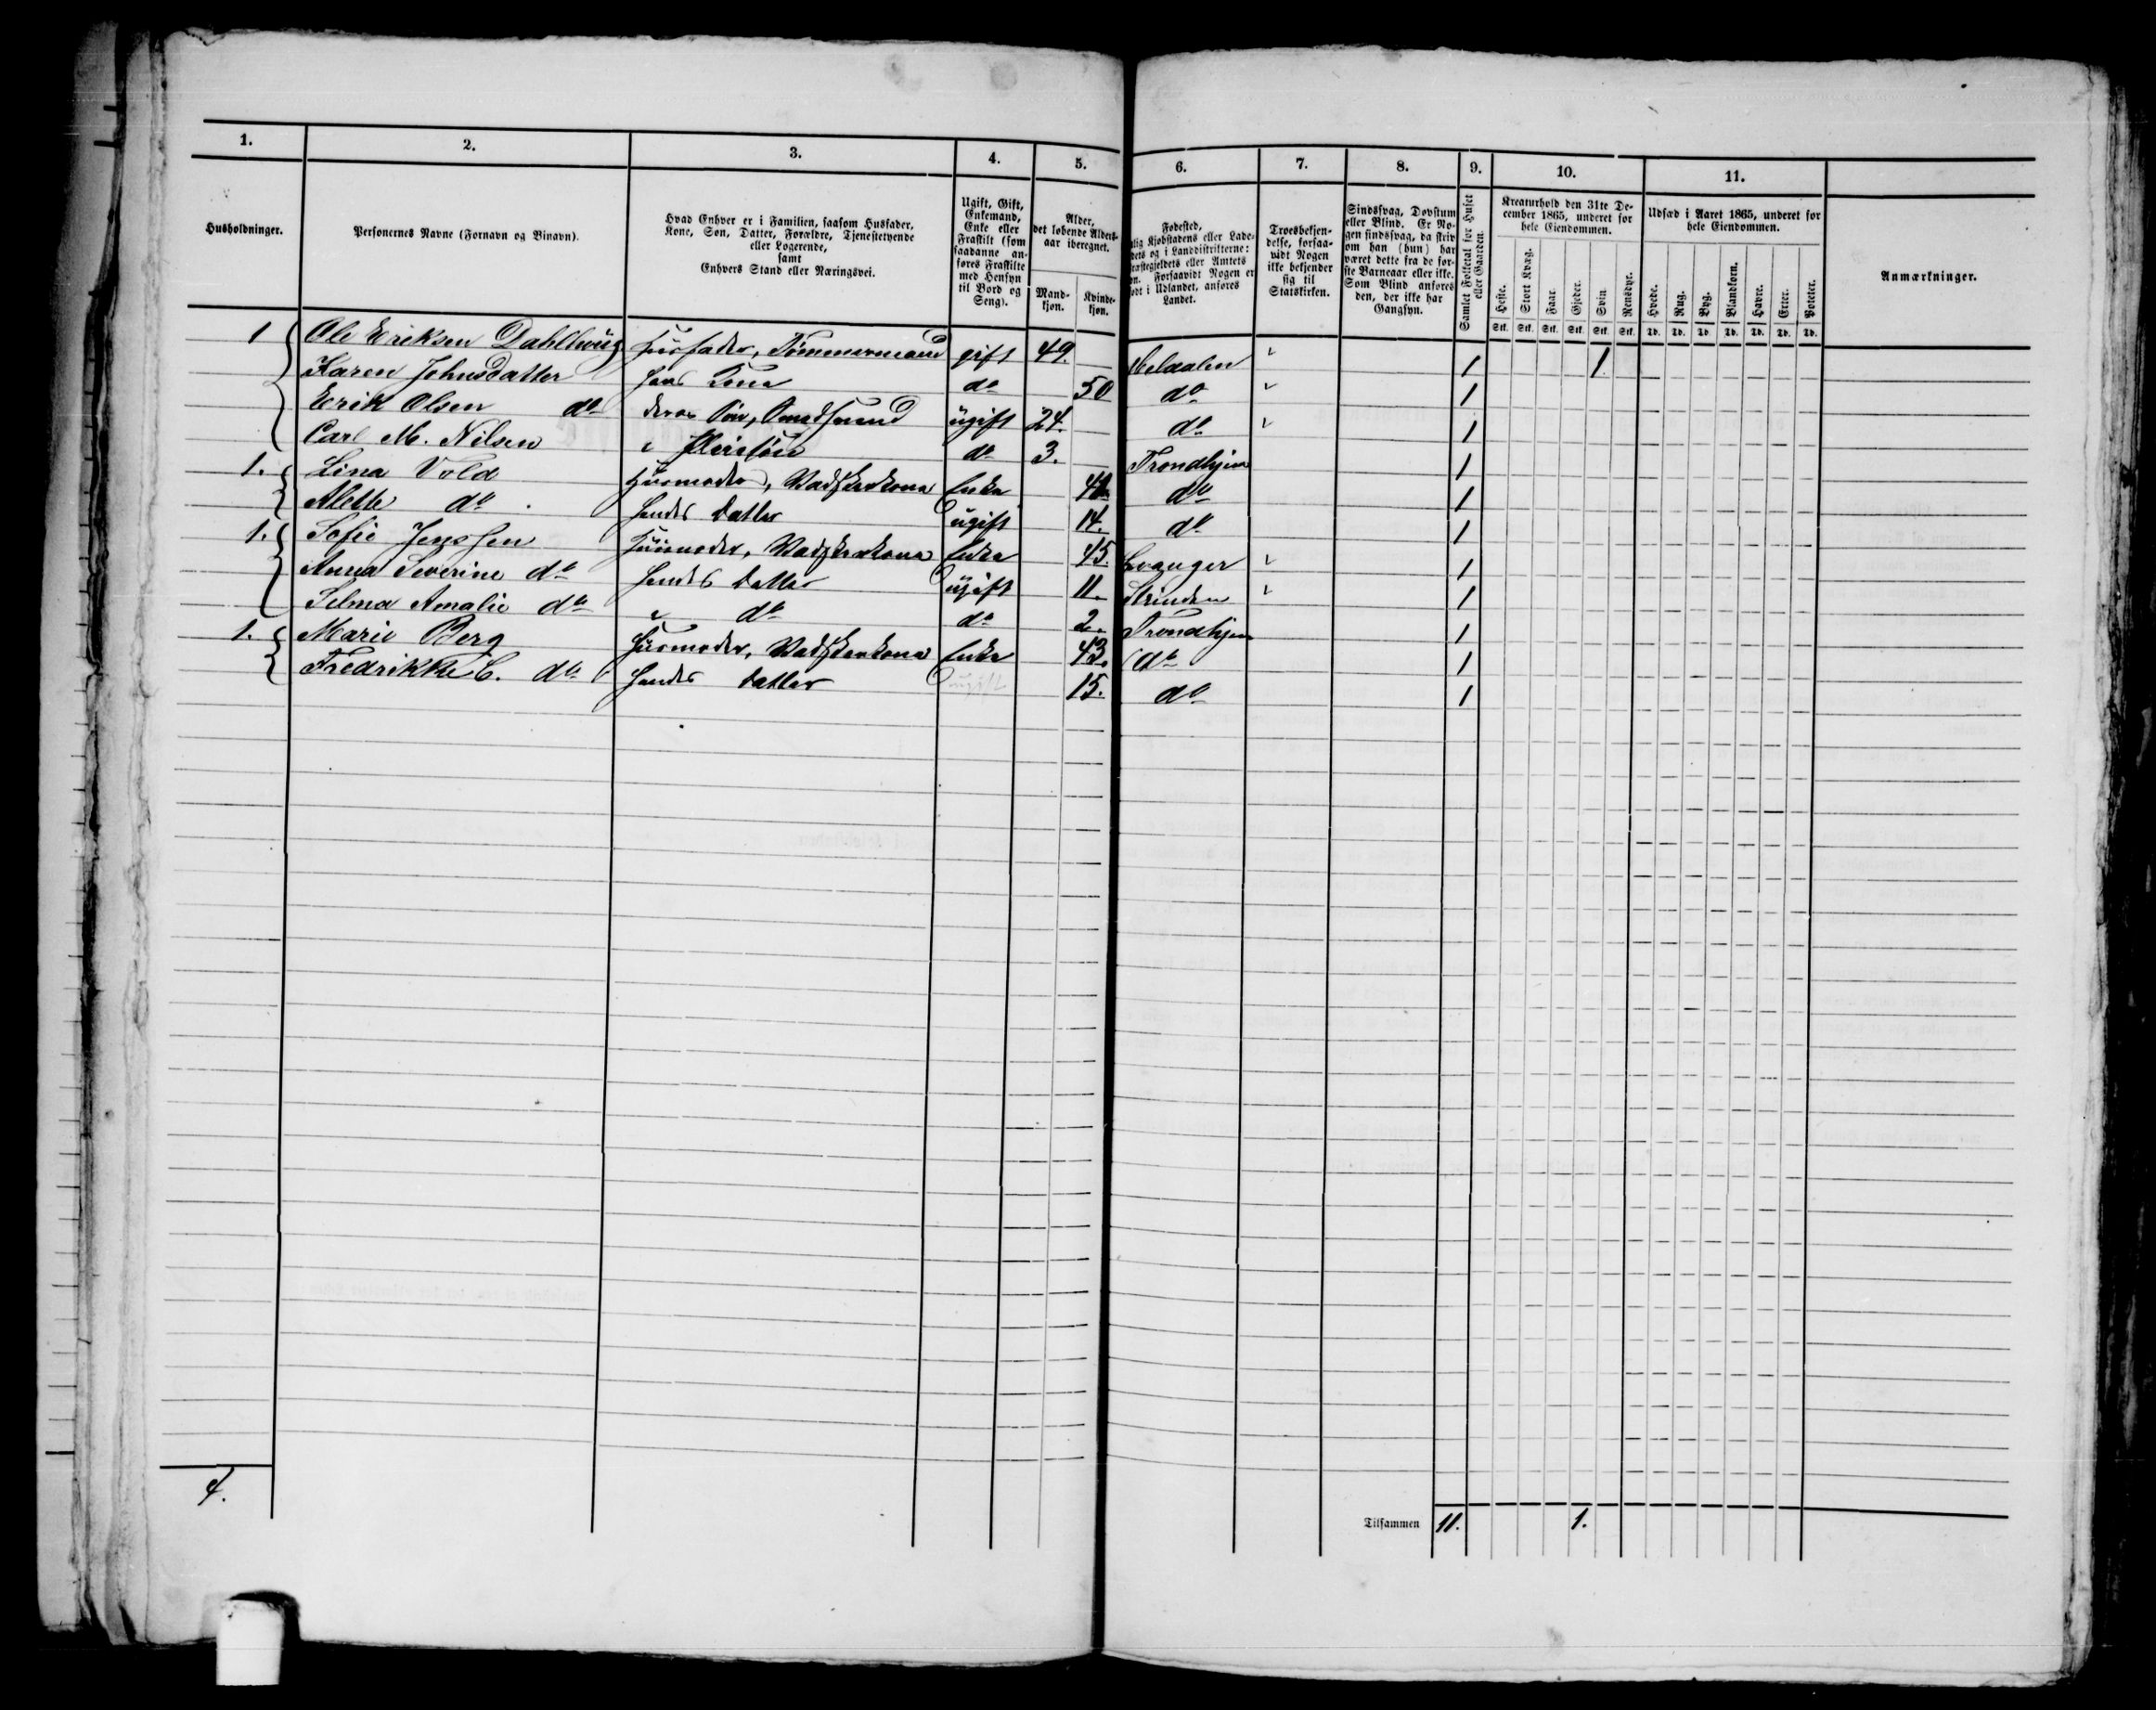 1. 2. 3. 4. 5. 6. 7. 8. 9. 10. 11.
Husholdninger.
Personernes Navne (Fornavn og Binavn).
Hvad Enhver er i Familien, saasom Husfader,
Kone, Søn, Datter, Forældre, Tjenestetyende
eller Logerende,
samt
Enhvers Stand eller Næringsvei.
Ugift, Gift,
Enkemand,
Enke eller
Fraskilt (som
saadanne an-
føres Fraskilte
med Hensyn
til Bord og
Seng).
Alder,
det løbende Alders-
aar iberegnet.
Mand-
kjøn.
Kvinde-
kjøn.
Fødested,
Kjøbstadens eller Lade-
og i Landdistrikterne:
eller Amtets
Forsaavidt Nogen er
i Udlandet, anføres
Landet.
Troesbekjen-
delse, forsaa-
vidt Nogen
ikke bekjender
sig til
Statskirken.
Sindssvag, Døvstum
eller Blind. Er No-
gen sindssvag, da skriv
om han (hun) har
været dette fra de før-
ste Barneaar eller ikke.
Som Blind anføres
den, der ikke har
Gangsyn.
Samlet Folketal for Huset
eller Gaarden.
Kreaturhold den 31te De-
cember 1865, underet for
hele Eiendommen.
Heste. Stort Kvæg. Faar. Gjeder. Svin. Rensdyr.
Stk. Stk. Stk. Stk. Stk. Stk.
Udsæd i Aaret 1865, underet for
hele Eiendommen.
Hvede. Rug. Byg. Blandkorn. Havre. Erter. Poteter.
Td. Td. Td. Td. Td. Td. Td.
Anmærkninger.
1 Ole Eriksen Dahlhaug Husfader, Tømmermand gift 49. 1 1
Karen Johnsdatter hans Kone do 50 do 1
Erik Olsen do deres Søn, ugift 24. do 1
Carl M. Nilsen Pleiesøn do 3. Trondhjem 1
1. Lina Vold Husmoder, Vadskerkone Enke do 1
Alette do hendes Datter ugift 14. do 1
1. Sofie Jenssen Husmoder, Vadskerkone Enke 45. Levanger 1
Anna Severine do hendes Datter ugift 11. Strinden 1
Selma Amalie do do do 2. Trondhjem 1
1. Marie Berg Husmoder, Vadskerkone Enke 43. do 1
Fredrikke C. do hendes Datter ugift 15. do 1
4.
Tilsammen 11. 1.